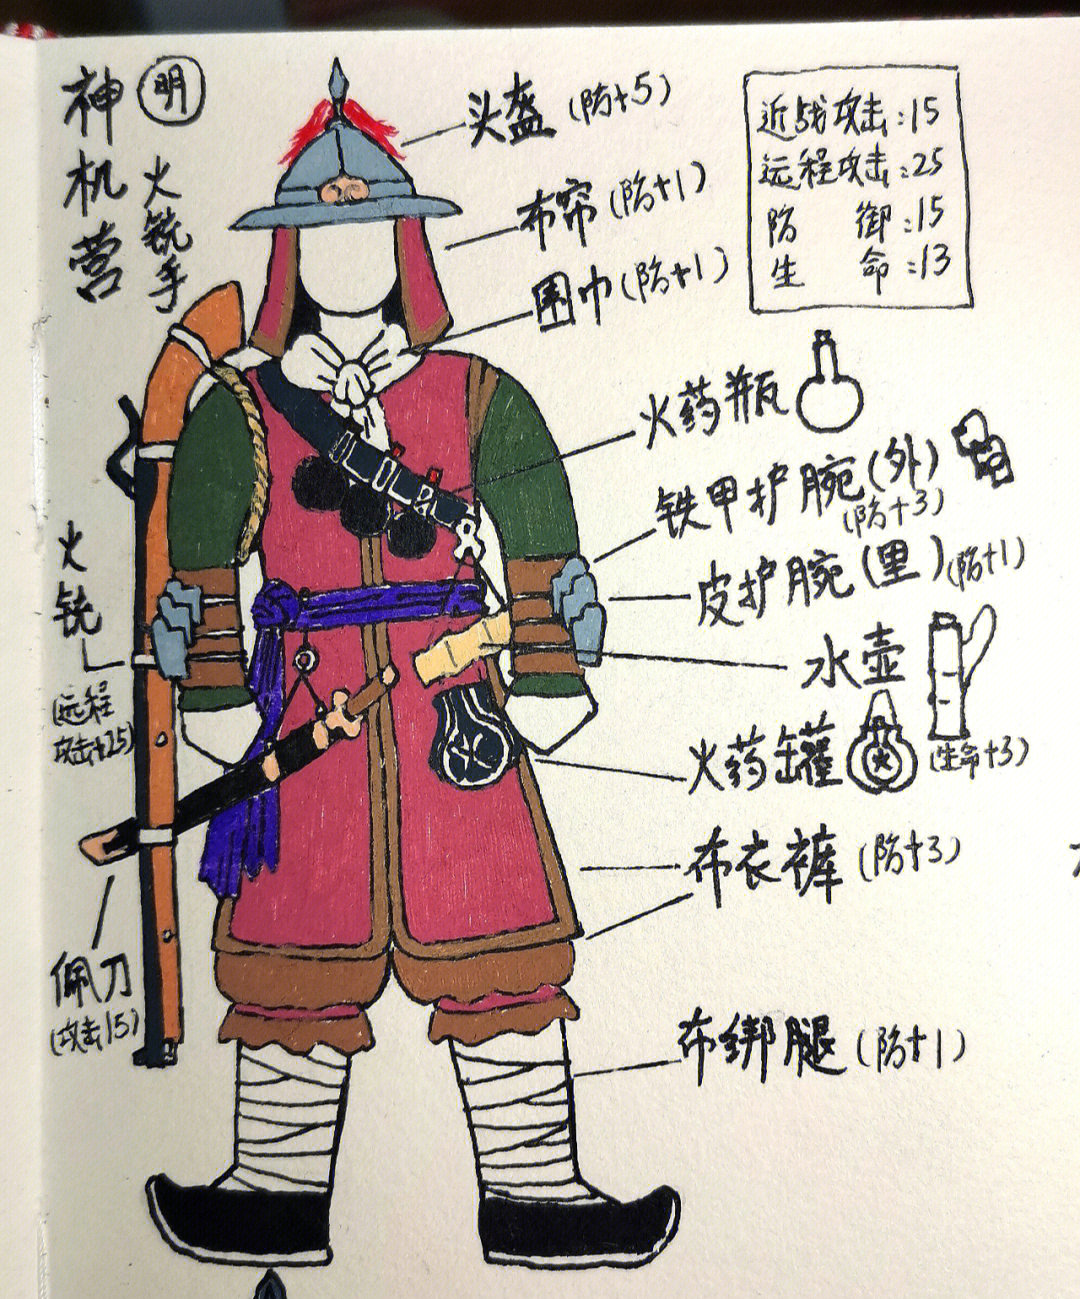 神机营
明
火铳手
头盔(防+5)
布帘(防+1)
围巾(防+1)
近战攻击:15
远程攻击:25
防御:15
生命:13
火药瓶
铁甲护腕(外)
(防+3)
皮护腕(里)(防+1)
水壶
(生命+3)
火药罐
火
布衣裤(防+3)
布绑腿(防+1)
火铳
(远程
攻击+25)
佩刀
(攻击15)